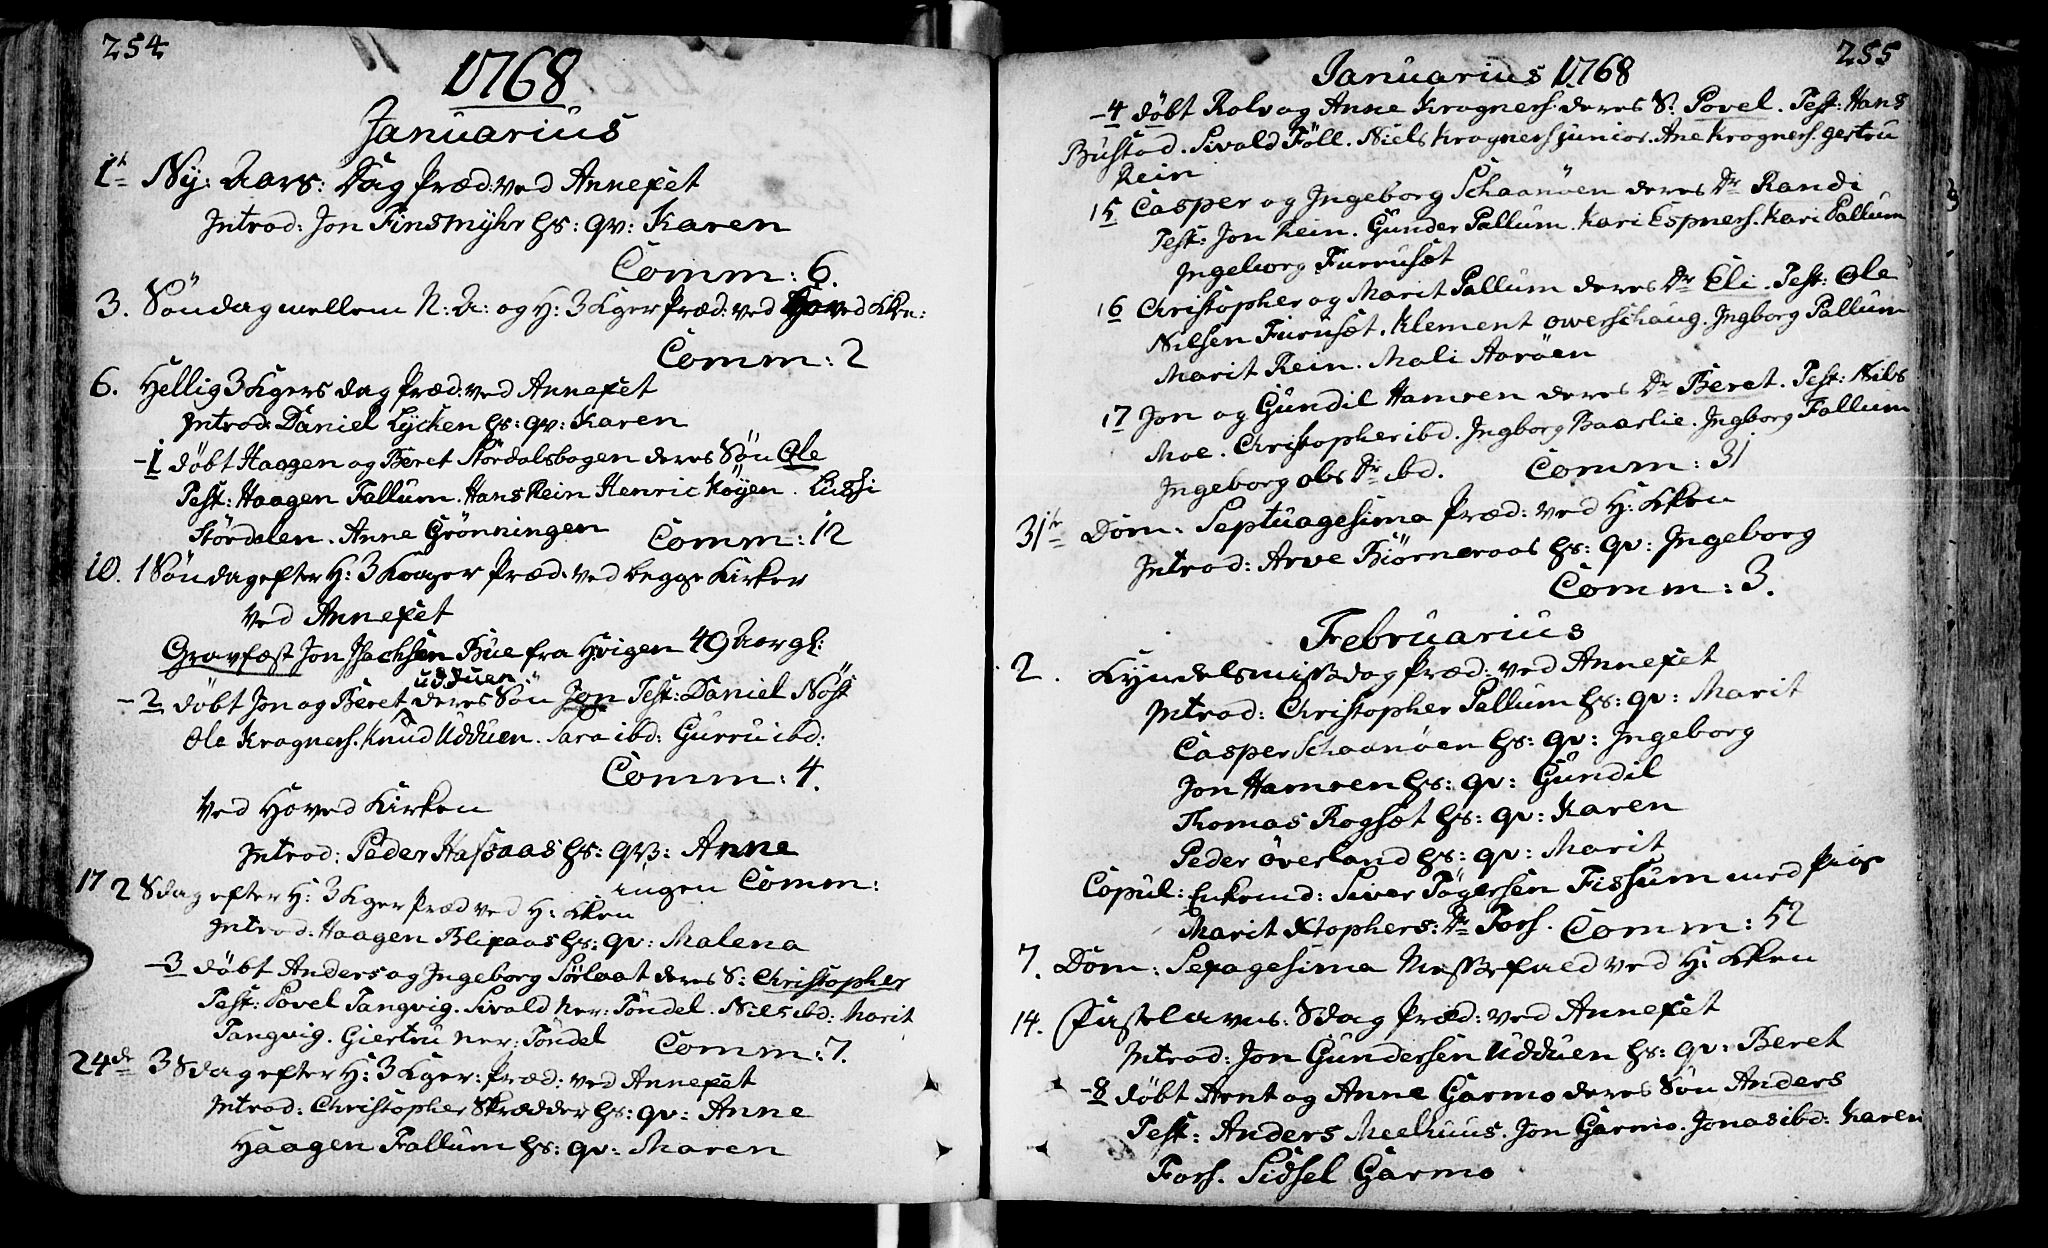 254
1768
Januarius
1t Nÿ: Aars: Dag Præd: ved Annexet
Introd: Jon Finsmÿhr hs: qv: Karen
Comm: 6.
3. Söndag mellem N: A: og H: 3 Kger Præd: ved Hoved Kken:
Comm: 2
6. Hellig 3 Kgers dag Præd: ved Annexet
Introd: Daniel Lÿcken hs: qv: Karen
-1 döbt Haagen og Beret Stördalsbogen deres Sön Ole
Test: Haagen Fallum. Hans Rein Henric Köyen. Lussi
Stördalen. Anne Grönningen Comm: 12
10. 1 Söndag efter H: 3 Konger Præd: ved begge Kirker
ved Annexet
Gravfæst Jon Isachsen Bue fra Hvigen 49 Aar gl:
udduen
-2 döbt Jon og Beret deres Sön Jon Test: Daniel Nöst
Ole Kragners. Knud Udduen. Sara ibd: Gurru ibd:
Comm: 4.
Ved Hoved Kirken
Introd: Peder Hassaas hs: qv: Anne
ingen Comm:
17 2 Sdag efter H: 3 Kger Præd ved H: Kken
Introd: Haagen Blixaas hs: qv: Malena
-3 döbt Anders og Ingeborg Sörlaat deres S: Christopher
Test: Povel Tangvig. Sivald Ner: Töndel. Nils ibd: Marit
Tangvig. Giertru Ner: Töndel Comm: 7.
24de 3 Sdag efter H: 3 Kger: Præd: ved Annexet
Introd: Christopher Skrædder hs: qv: Anne
Haagen Fallum hs: qv: Maren
255
Januarius 1768
-4 döbt Rolv og Anne Kragners. deres S. Povel. Test: Hans
Bustad. Sivald Föll. Niels Kragners junior. Ane Kragners. gertru
Rein
15 Casper og Ingeborg Schaanöen deres Dr Randi
Test: Jon Rein. Gunder Pallum. Kari Espners. Kari Pallum
Ingeborg Furruset
16 Christopher og Marit Pallum deres Dr Eli. Test: Ole
Nilsen Furuset. Klement Owerschaug. Ingborg Pallum
Marit Rein. Mali Aaröen
17 Jon og Gundil Hamoen deres Dr Beret. Test: Nils
Moe. Christopher ibd. Ingborg Baarlie. Ingborg Fallum
Ingeborg ols Dr ibd. Comm: 31
31te Dom: Septuagesima Præd: ved H: Kken
Introd: Arve Biörneraas hs: qv: Ingeborg
Comm: 3.
Februarius
2. Kÿndelsmissdag Præd: ved Annexet
Introd: Christopher Pallum hs: qv: Marit
Casper Schaanöen hs: qv: Ingeborg
Jon Hamoen hs: qv: Gundil
Thomas Rogset hs: qv: Karen
Peder Överland hs: qv: Marit
Copul: Enkemd: Siver Tögersen Fissum med Pige
Marit Xtophers: Dr Fors. Comm: 52
7. Dom: Sexagesima Messefald ved H: Kken
14. Fastelavns: Sdag Præd: ved Annexet
Introd: Jon Gundersen Udduen hs: qv: Beret
-8 döbt Arnt og Anne Garmo deres Sön Anders
Test: Anders Meehuus. Jon Garmo. Jonas ibd: Karen
Fors. Sidsel Garmo